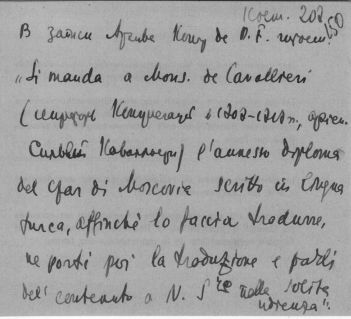 Конст. 202/50
В записи Архива Конгр de P. F. гласит:
"Si manda a Mons. de Cavallieri
(секретарь Конгрегации в 1702-1717 г., архиеп.
Сильвий Каваллиери) l'annesso diploma
del Czar di Moscovia scritto in lingua
turca, affinché lo faccia tradurre,
ne porti poi la traduzione e parli
del contenuto a N. S.re nella solita
udienza".